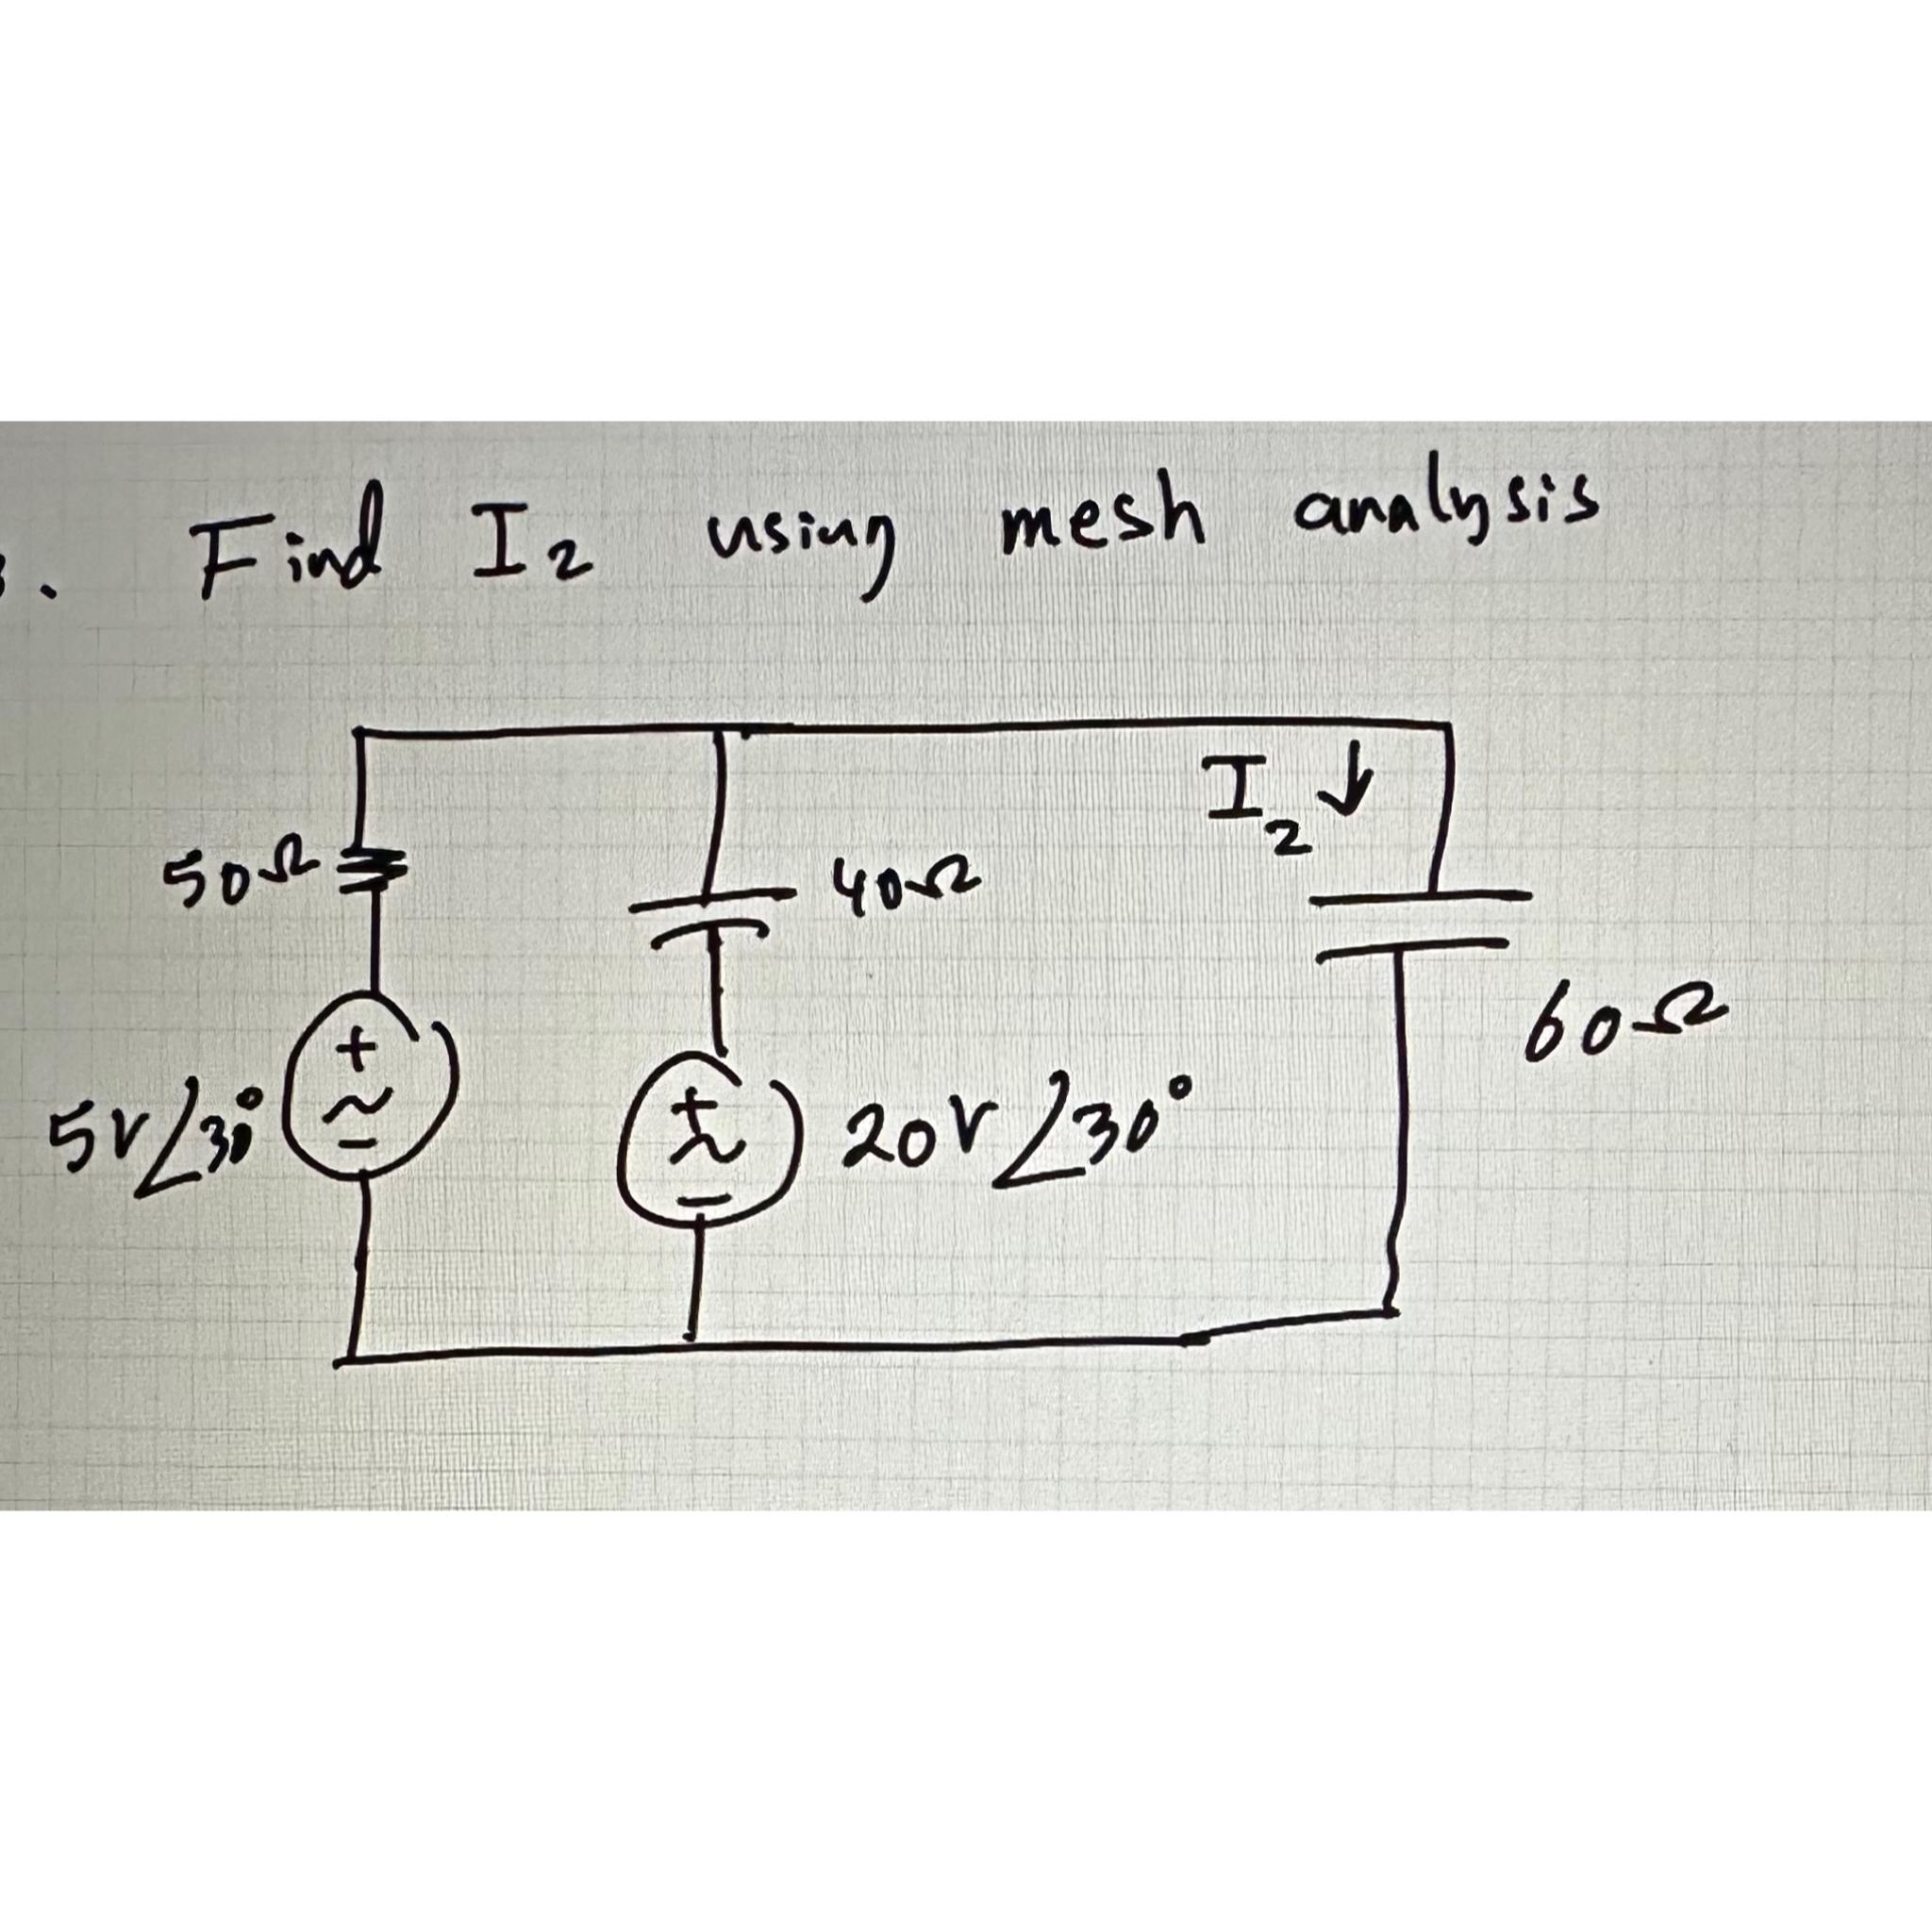 . Find I2 using mesh analysis
I2 ↓
50Ω
40Ω
60Ω
+
~
-
5V∠30°
+
~
-
20V∠30°